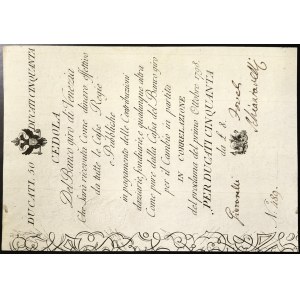 DUCATI 50 DUCATI CINQUANTA
CEDOLA
Del Banco giro di Venezia
Che sarà ricevuta come dinaro effettivo
da tutte le Casse Regie
e Pubbliche
in pagamento delle Contribuzioni
daziarie, fondiarie, e qualunque altra
Come pure dalla Cassa del Banco giro
per il Cambio in partita
IN CORRELAZIONE
del proclama del primo Ottobre 1798
PER DUCATI CINQUANTA